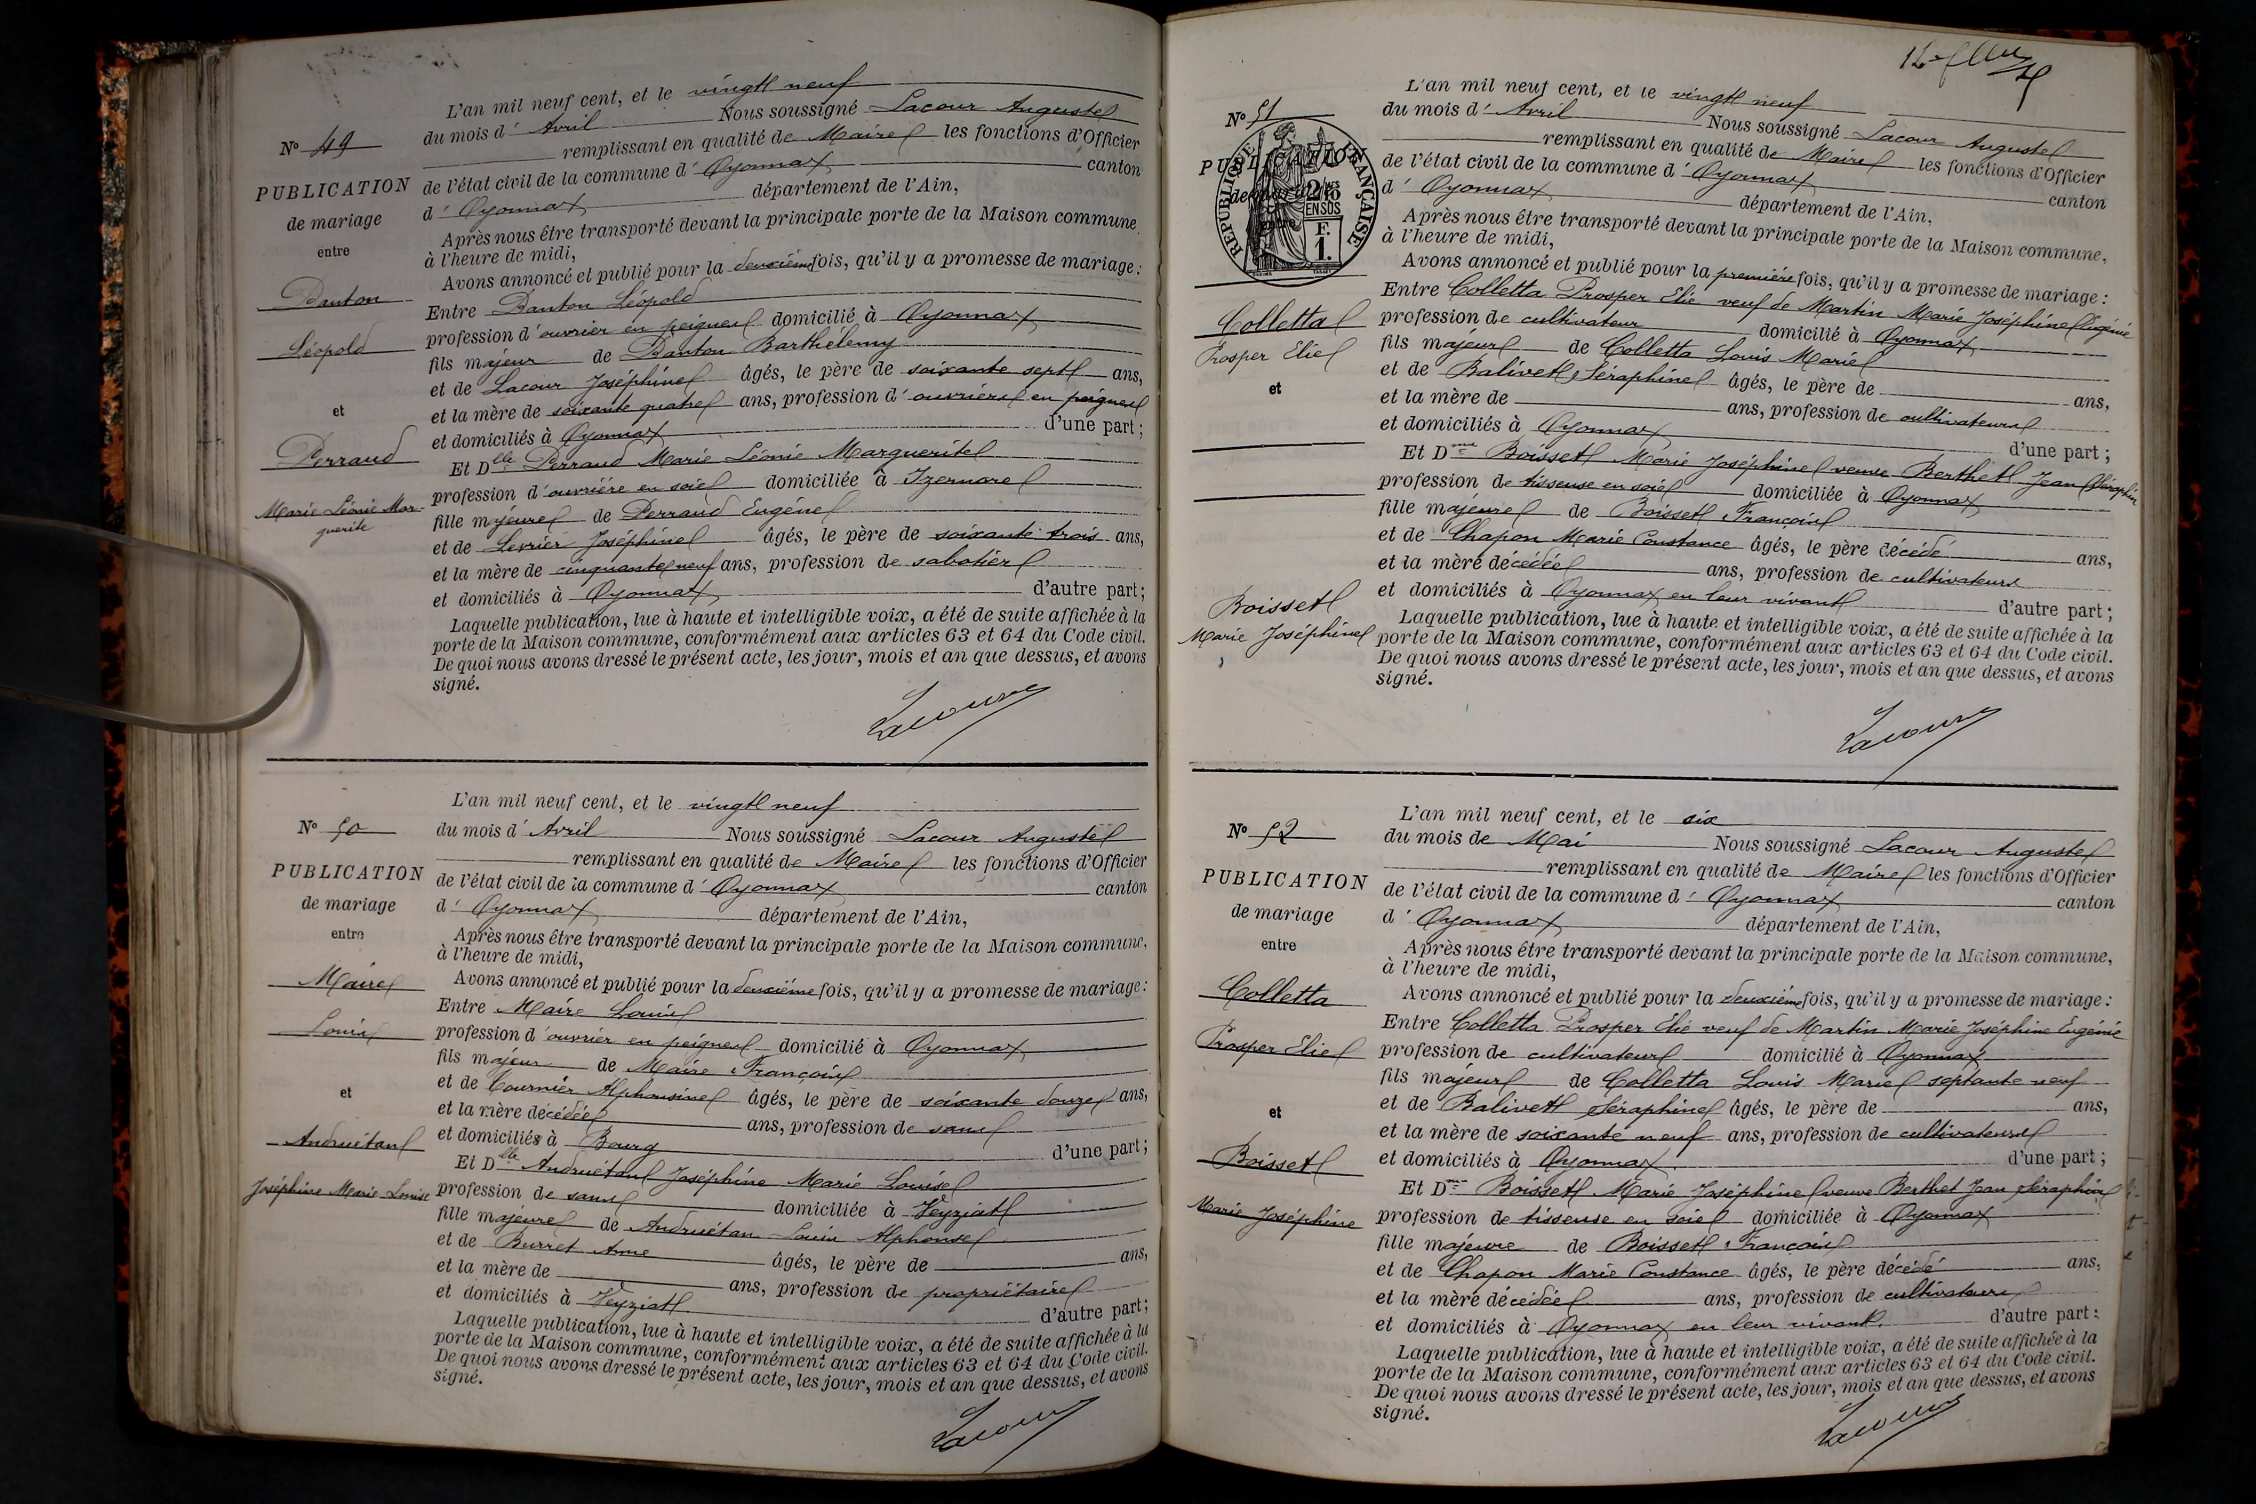 L'an mil neuf cent, et le vingt neuf
du mois d' Avril Nous soussigné Lacour Auguste
remplissant en qualité de Maire les fonctions d'Officier
de l'état civil de la commune d' Oyonnax canton
d' Oyonnax département de l'Ain,
Après nous être transporté devant la principale porte de la Maison commune,
à l'heure de midi,
Avons annoncé et publié pour la deuxième fois, qu'il y a promesse de mariage :
Entre Danton Léopold
profession d'ouvrier en peignes domicilié à Oyonnax
fils majeur de Danton Barthélemy
et de Lacour Joséphine âgés, le père de soixante sept ans,
et la mère de soixante quatre ans, profession d'ouvriers en peignes
et domiciliés à Oyonnax d'une part ;
Et Dlle Perraud Marie Léonie Marguerite
profession d'ouvrière en soie domiciliée à Izernore
fille majeure de Perraud Eugène
et de Levrier Joséphine âgés, le père de soixante trois ans,
et la mère de cinquante neuf ans, profession de sabotier
et domiciliés à Oyonnax d'autre part ;
Laquelle publication, lue à haute et intelligible voix, a été de suite affichée à la
porte de la Maison commune, conformément aux articles 63 et 64 du Code civil.
De quoi nous avons dressé le présent acte, les jour, mois et an que dessus, et avons
signé.
Lacour
No 49
PUBLICATION
de mariage
entre
Danton
Léopold
et
Perraud
Marie Léonie Mar-
guerite
L'an mil neuf cent, et le vingt neuf
du mois d' Avril Nous soussigné Lacour Auguste
remplissant en qualité de Maire les fonctions d'Officier
de l'état civil de la commune d' Oyonnax canton
d' Oyonnax département de l'Ain,
Après nous être transporté devant la principale porte de la Maison commune,
à l'heure de midi,
Avons annoncé et publié pour la deuxième fois, qu'il y a promesse de mariage :
Entre Maire Louis
profession d'ouvrier en peignes domicilié à Oyonnax
fils majeur de Maire François
et de Cournier Alphonsine âgés, le père de soixante douze ans,
et la mère décédée ans, profession de sans
et domiciliés à Bourg d'une part ;
Et Dlle Andruétan Joséphine Marie Louise
profession de sans domiciliée à Veyziat
fille majeure de Andruétan Louis Alphonse
et de Burret Anne âgés, le père de ans,
et la mère de ans, profession de propriétaire
et domiciliés à Veyziat d'autre part ;
Laquelle publication, lue à haute et intelligible voix, a été de suite affichée à la
porte de la Maison commune, conformément aux articles 63 et 64 du Code civil.
De quoi nous avons dressé le présent acte, les jour, mois et an que dessus, et avons
signé.
Lacour
No 50
PUBLICATION
de mariage
entre
Maire
Louis
et
Andruétan
Joséphine Marie Louise
L'an mil neuf cent, et le vingt neuf
du mois d' Avril Nous soussigné Lacour Auguste
remplissant en qualité de Maire les fonctions d'Officier
de l'état civil de la commune d' Oyonnax canton
d' Oyonnax département de l'Ain,
Après nous être transporté devant la principale porte de la Maison commune,
à l'heure de midi,
Avons annoncé et publié pour la première fois, qu'il y a promesse de mariage :
Entre Colletta Prosper Elie veuf de Martin Marie Joséphine Eugénie
profession de cultivateur domicilié à Oyonnax
fils majeur de Colletta Louis Marie
et de Balivet Séraphine âgés, le père de ans,
et la mère de ans, profession de cultivateurs
et domiciliés à Oyonnax d'une part ;
Et Dme Boisset Marie Joséphine veuve Berthet Jean Séraphin
profession de tisseuse en soie domiciliée à Oyonnax
fille majeure de Boisset François
et de Chapon Marie Constance âgés, le père décédé ans,
et la mère décédée ans, profession de cultivateurs
et domiciliés à Oyonnax en leur vivant d'autre part ;
Laquelle publication, lue à haute et intelligible voix, a été de suite affichée à la
porte de la Maison commune, conformément aux articles 63 et 64 du Code civil.
De quoi nous avons dressé le présent acte, les jour, mois et an que dessus, et avons
signé.
Lacour
No 51
PUBLICATION
de mariage
entre
RÉPUBLIQUE FRANÇAISE
2/10
EN SUS
F.
1.
Colletta
Prosper Elie
et
Boisset
Marie Joséphine
L'an mil neuf cent, et le six
du mois de Mai Nous soussigné Lacour Auguste
remplissant en qualité de Maire les fonctions d'Officier
de l'état civil de la commune d' Oyonnax canton
d' Oyonnax département de l'Ain,
Après nous être transporté devant la principale porte de la Maison commune,
à l'heure de midi,
Avons annoncé et publié pour la deuxième fois, qu'il y a promesse de mariage :
Entre Colletta Prosper Elie veuf de Martin Marie Joséphine Eugénie
profession de cultivateur domicilié à Oyonnax
fils majeur de Colletta Louis Marie septante neuf
et de Balivet Séraphine âgés, le père de ans,
et la mère de soixante neuf ans, profession de cultivateurs
et domiciliés à Oyonnax d'une part ;
Et Dme Boisset Marie Joséphine veuve Berthet Jean Séraphin
profession de tisseuse en soie domiciliée à Oyonnax
fille majeure de Boisset François
et de Chapon Marie Constance âgés, le père décédé ans,
et la mère décédée ans, profession de cultivateurs
et domiciliés à Oyonnax en leur vivant. d'autre part ;
Laquelle publication, lue à haute et intelligible voix, a été de suite affichée à la
porte de la Maison commune, conformément aux articles 63 et 64 du Code civil.
De quoi nous avons dressé le présent acte, les jour, mois et an que dessus, et avons
signé.
Lacour
No 52
PUBLICATION
de mariage
entre
Colletta
Prosper Elie
et
Boisset
Marie Joséphine